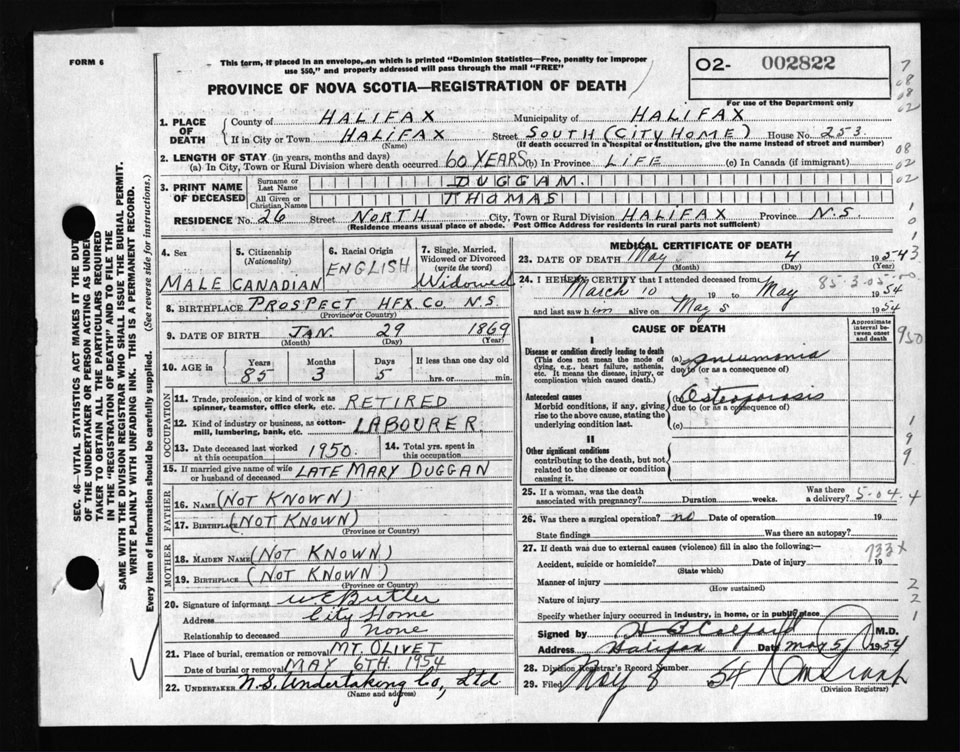 FORM 6
This form, if placed in an envelope, on which is printed "Dominion Statistics—Free, penalty for improper
use $50," and properly addressed will pass through the mail "FREE"
O2- 002822
PROVINCE OF NOVA SCOTIA—REGISTRATION OF DEATH
For use of the Department only
1. PLACE OF DEATH
County of HALIFAX Municipality of HALIFAX
If in City or Town HALIFAX Street SOUTH (CITY HOME) House No. 253
(Name) (If death occurred in a hospital or institution, give the name instead of street and number)
2. LENGTH OF STAY (in years, months and days)
(a) In City, Town or Rural Division where death occurred 60 YEARS (b) In Province LIFE (c) In Canada (if immigrant)
3. PRINT NAME OF DECEASED
Surname or Last Name DUGGAN.
All Given or Christian Names THOMAS
RESIDENCE No. 26 Street NORTH City, Town or Rural Division HALIFAX Province N.S.
(Residence means usual place of abode. Post Office Address for residents in rural parts not sufficient)
4. Sex
MALE
5. Citizenship
(Nationality)
CANADIAN
6. Racial Origin
ENGLISH
7. Single, Married,
Widowed or Divorced
(write the word)
Widowed
8. BIRTHPLACE PROSPECT HFX. CO. N.S
(Province or Country)
9. DATE OF BIRTH JAN. 29 1869
(Month) (Day) (Year)
10. AGE in
Years Months Days If less than one day
85 3 5 hrs. or min.
OCCUPATION
11. Trade, profession, or kind of work as
spinner, teamster, office clerk, etc. RETIRED
12. Kind of industry or business, as cotton-
mill, lumbering, bank, etc. LABOURER
13. Date deceased last worked
at this occupation 1950.
14. Total yrs. spent in
this occupation
15. If married give name of wife
or husband of deceased LATE MARY DUGGAN
FATHER
16. NAME (NOT KNOWN)
17. BIRTHPLACE (NOT KNOWN)
(Province or Country)
MOTHER
18. MAIDEN NAME (NOT KNOWN)
19. BIRTHPLACE (NOT KNOWN)
(Province or Country)
20. Signature of informant W E Butler
Address City Home
Relationship to deceased None
21. Place of burial, cremation or removal MT. OLIVET
Date of burial or removal MAY 6TH. 1954
22. UNDERTAKER N.S. Undertaking Co, Ltd
(Name and address)
MEDICAL CERTIFICATE OF DEATH
23. DATE OF DEATH May 4 1954
(Month) (Day) (Year)
24. I HEREBY CERTIFY that I attended deceased from
March 10 19 to May 1954
and last saw him alive on May 5 1954
CAUSE OF DEATH
Approximate
interval be-
tween onset
and death
I
Disease or condition directly leading to death
(This does not mean the mode of
dying, e.g., heart failure, asthenia,
etc. It means the disease, injury, or
complication which caused death.)
(a) pneumonia
due to (or as a consequence of)
Antecedent causes
Morbid conditions, if any, giving
rise to the above cause, stating the
underlying condition last.
(b) Osteoporosis
due to (or as a consequence of)
(c)
II
Other significant conditions
contributing to the death, but not
related to the disease or condition
causing it.
25. If a woman, was the death
associated with pregnancy? Duration weeks. Was there
a delivery?
5-04.4
26. Was there a surgical operation? no Date of operation 19
State findings Was there an autopsy?
27. If death was due to external causes (violence) fill in also the following:—
Accident, suicide or homicide? Date of injury 19
(State which)
Manner of injury
(How sustained)
Nature of injury
Specify whether injury occurred in industry, in home, or in public place
Signed by M.D.
Address Halifax Date May 5/ 1954
28. Division Registrar's Record Number
29. Filed May 8 54
(Division Registrar)
SEC. 46—VITAL STATISTICS ACT MAKES IT THE DUTY
OF THE UNDERTAKER OR PERSON ACTING AS UNDER-
TAKER TO OBTAIN ALL THE PARTICULARS REQUIRED
IN THE "REGISTRATION OF DEATH" AND TO FILE THE
SAME WITH THE DIVISION REGISTRAR WHO SHALL ISSUE THE BURIAL PERMIT.
WRITE PLAINLY WITH UNFADING INK. THIS IS A PERMANENT RECORD.
Every item of information should be carefully supplied. (See reverse side for instructions.)